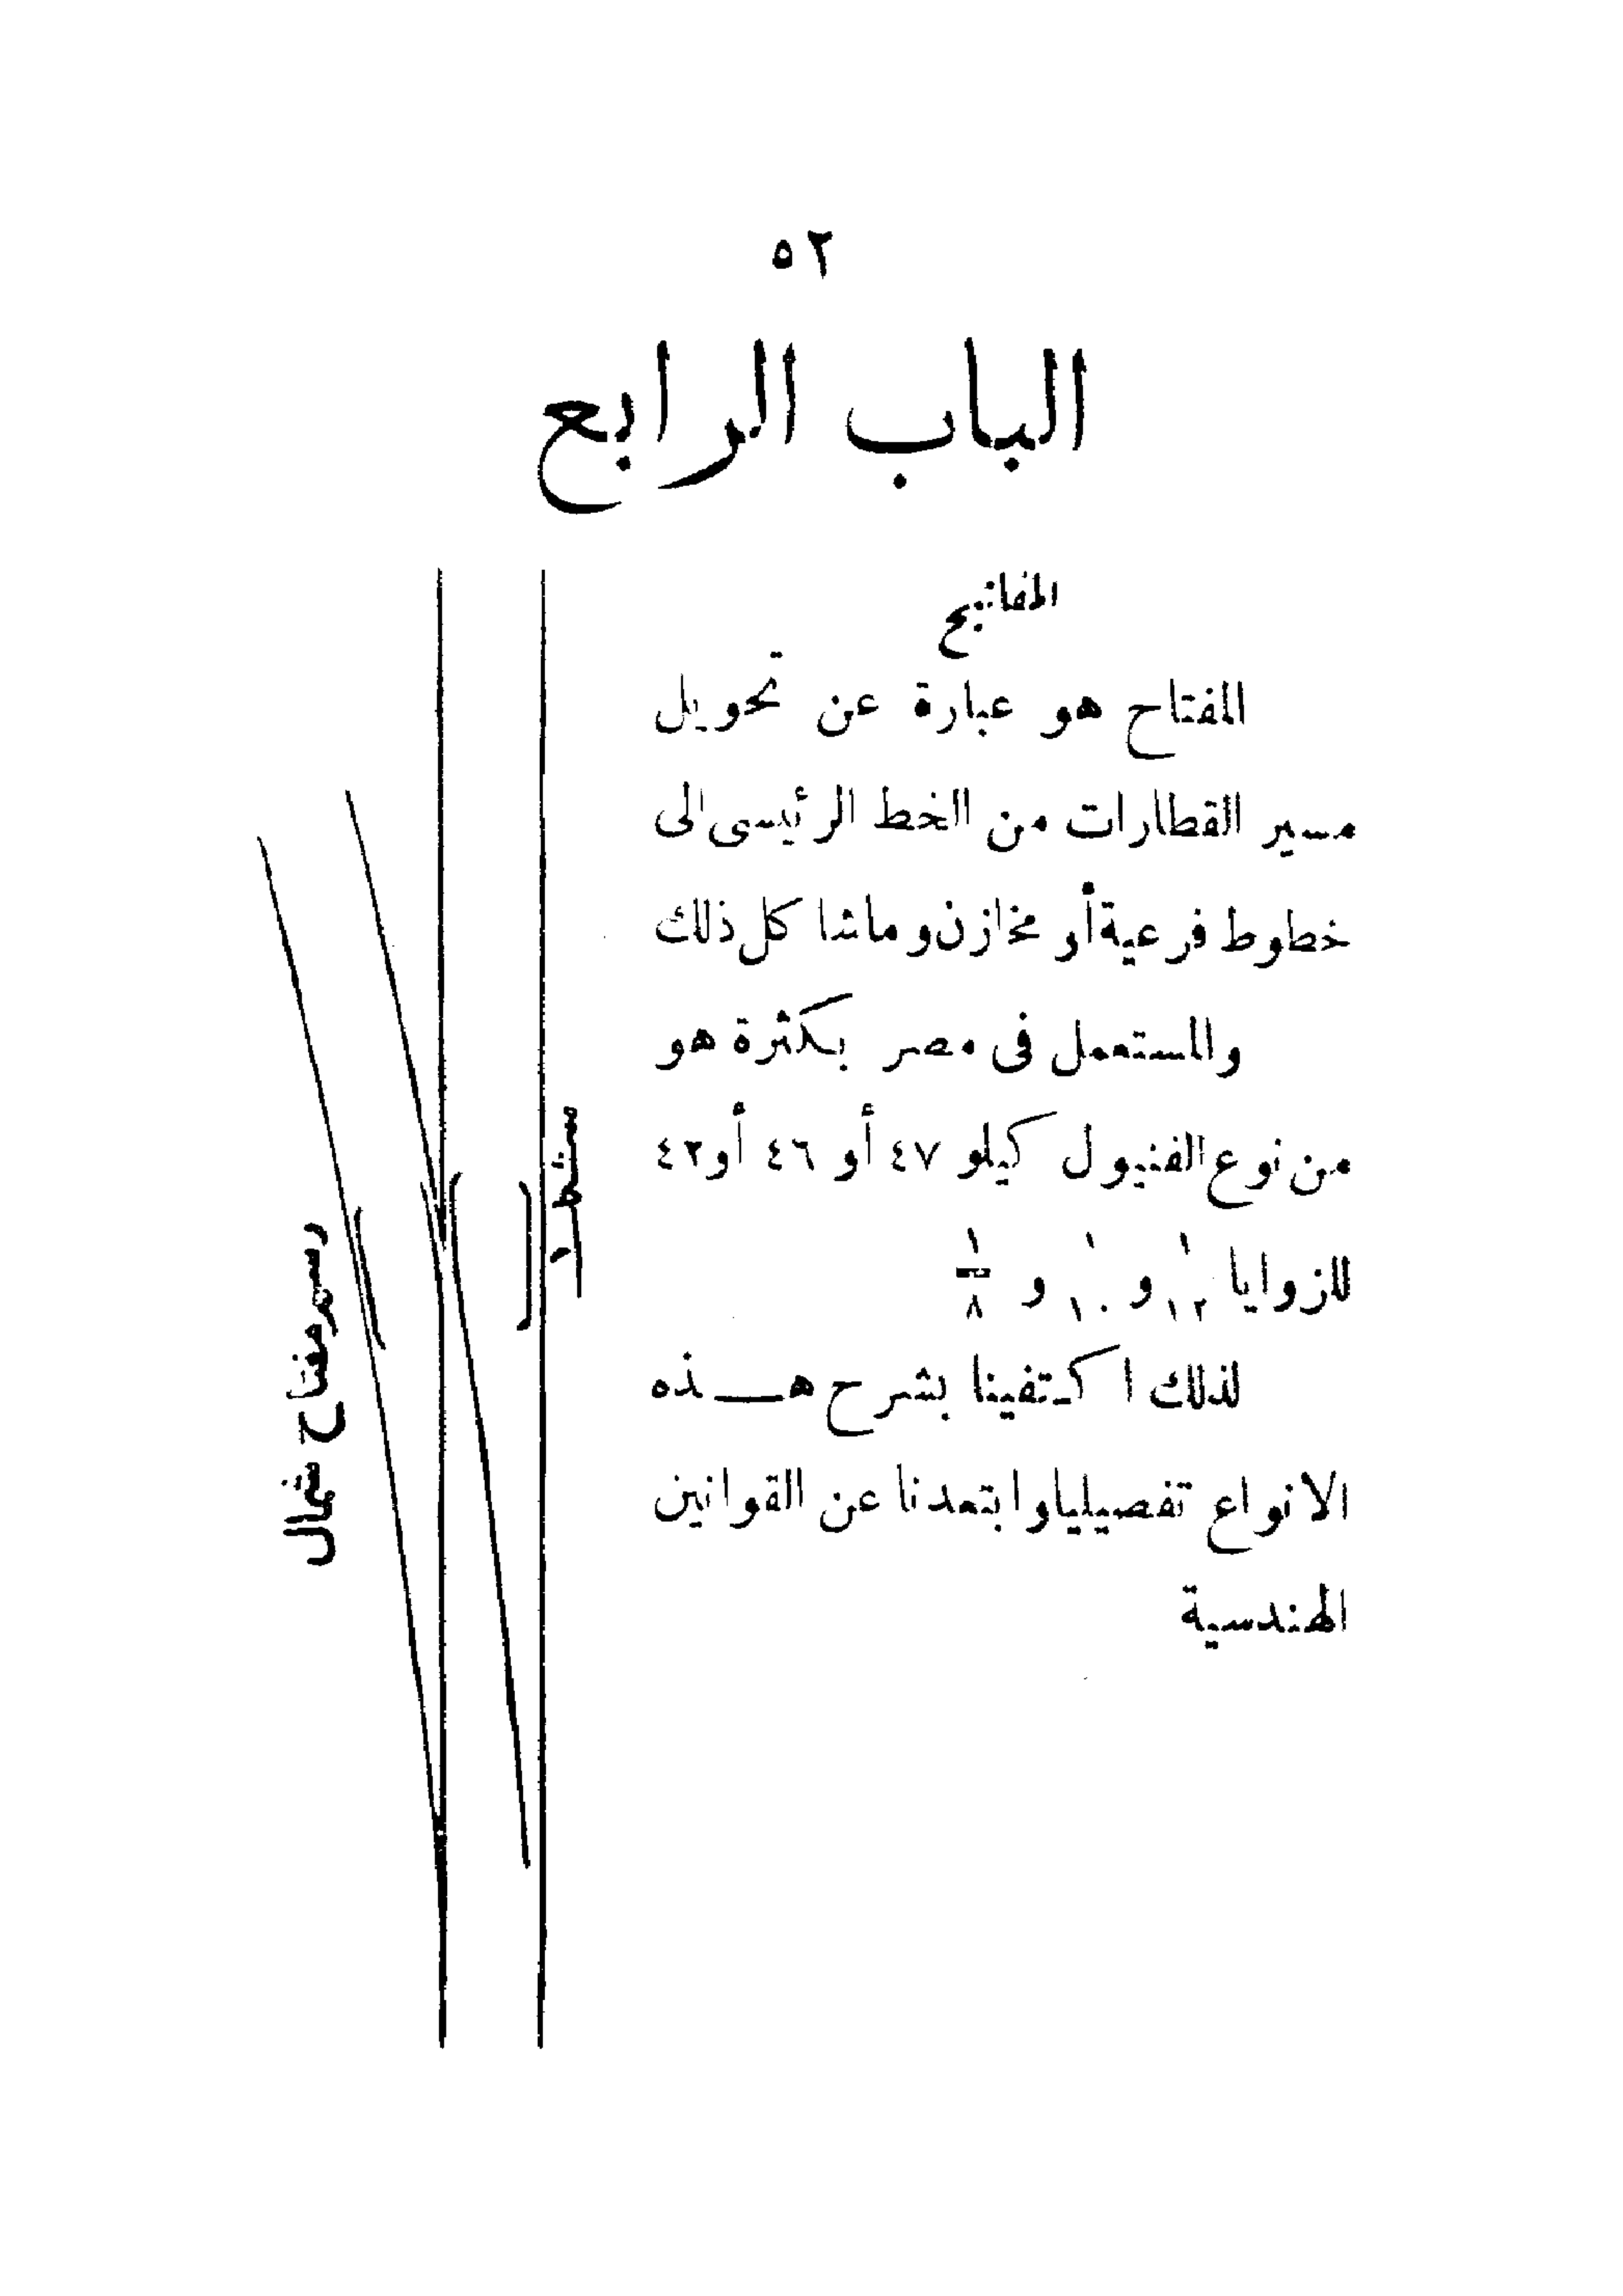 ٥٢
الباب الرابع
المفاتيح
المفتاح هو عبارة عن تحويل
مسير القطارات من الخط الرئيسى الى
خطوط فرعية أو مخازن وماشا كل ذلك
والمستعمل فى مصر بكثرة هو
من نوع الفنيول كيلو ٤٧ أو ٤٦ أو ٤٢
للزوايا ١/١٢ و ١/١٠ و ١/٨
لذلك اكتفينا بشرح هـــذه
الانواع تفصيليا وابتعدنا عن القوانين
الهندسية
رسم مفتاح شمال